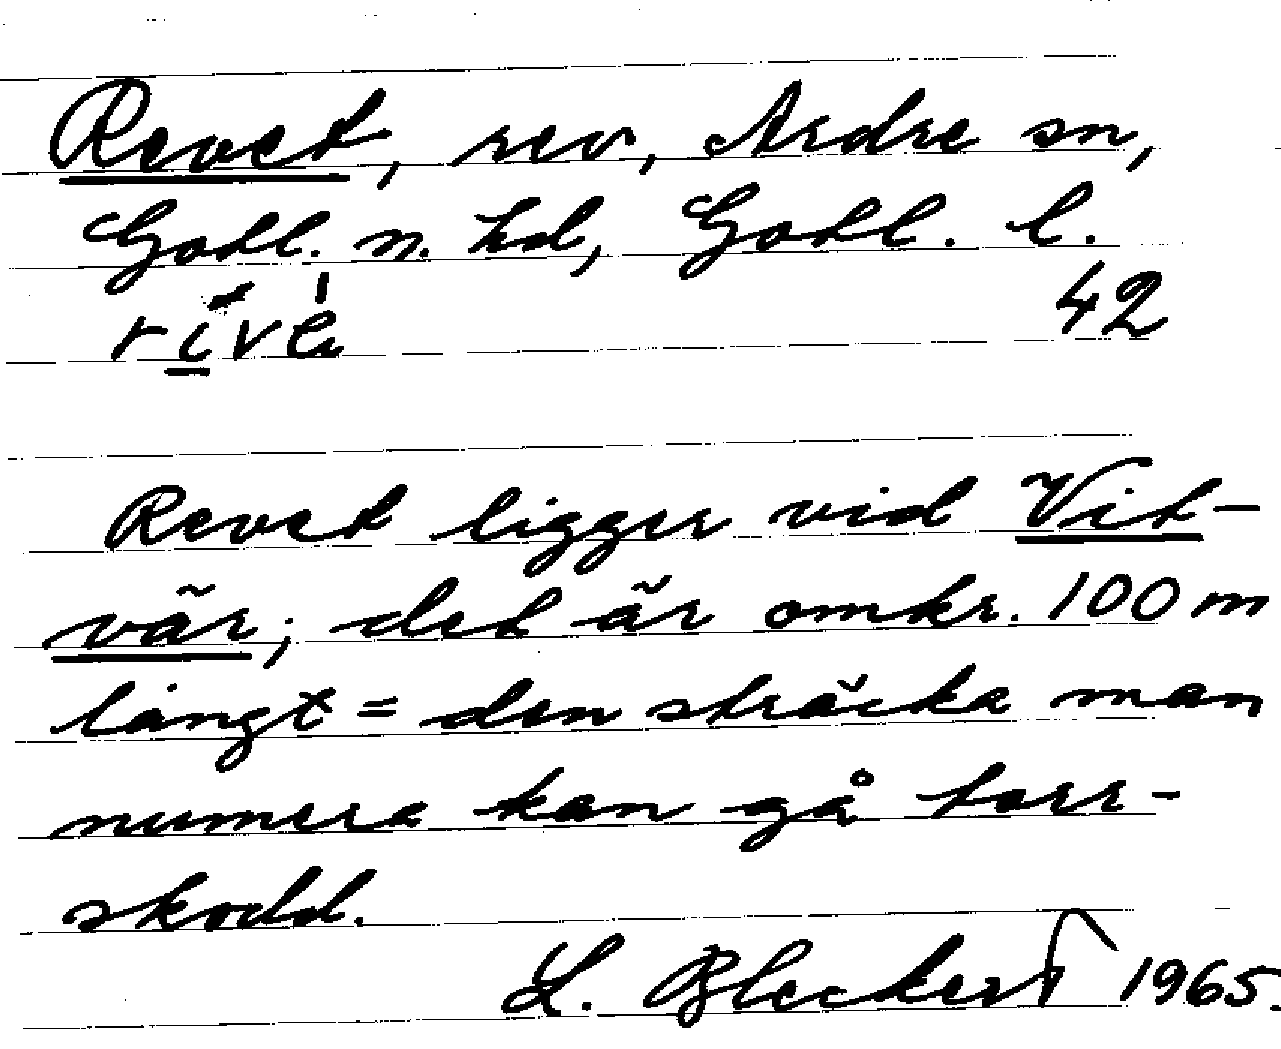 Revet, rev, Ardre sn,
Gotl. n. hd, Gotl. l.
rívè 42
Revet ligger vid Vit-
vär; det är omkr. 100 m
långt = den sträcka man
numera kan gå torr-
skodd.
L. Bleckert 1965.